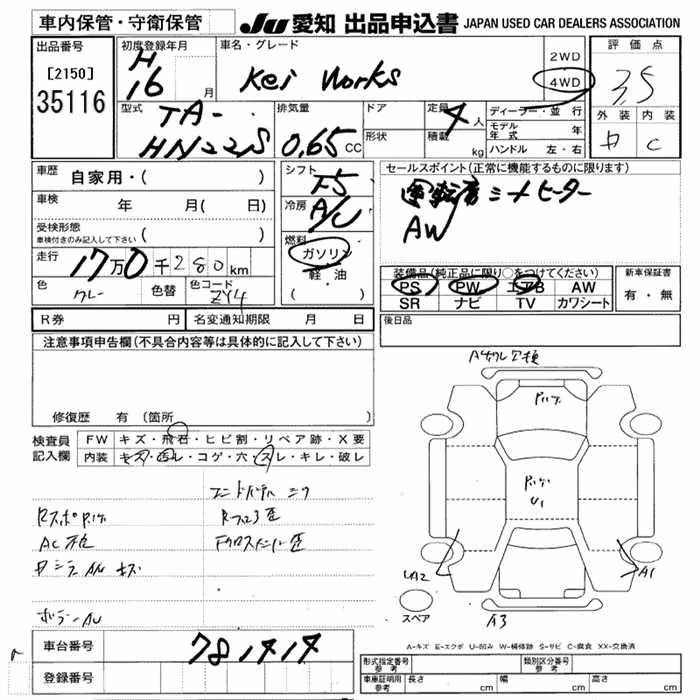 車内保管・守衛保管 JU 愛知 出品申込書 JAPAN USED CAR DEALERS ASSOCIATION
出品番号 初度登録年月 車名・グレード 評価点
[2150] H 16 月 Kei Works 2WD 4WD 3.5
35116 型式 排気量 ドア 定員 4人 ディーラー・並行 外装 内装
TA- モデル年式 年 C
HN22S 0.65 CC 形状 積載 kg ハンドル 左・右
車歴 自家用・( ) シフト F5 セールスポイント(正常に機能するものに限ります)
車検 年 月( 日) 冷房 A/C 運転席シートヒーター
受検形態 車検付きのみ記入して下さい ( ) 燃料 AW
走行 17万0千280km ガソリン 軽・油 ( )
装備品(純正品に限り○をつけてください) 新車保証書
色 グレー 色替 色コード ZY4 PS PW エアB AW 有・無
SR ナビ TV カワシート
R券 円 名変通知期限 月 日 後日品
注意事項申告欄(不具合内容等は具体的に記入して下さい)
修復歴 有 (箇所
検査員記入欄 FW キズ・飛石・ヒビ割・リペア跡・X要
内装 キズ・汚レ・コゲ・穴・スレ・キレ・破レ
U1
A1
スペア A3
A-キズ E-エクボ U-凹み W-補修跡 S-サビ C-腐食 XX-交換済
車台番号 781717
登録番号
型式指定番号 参考 類別区分番号 参考
車庫証明用 参考 長さ cm 幅 cm 高さ cm